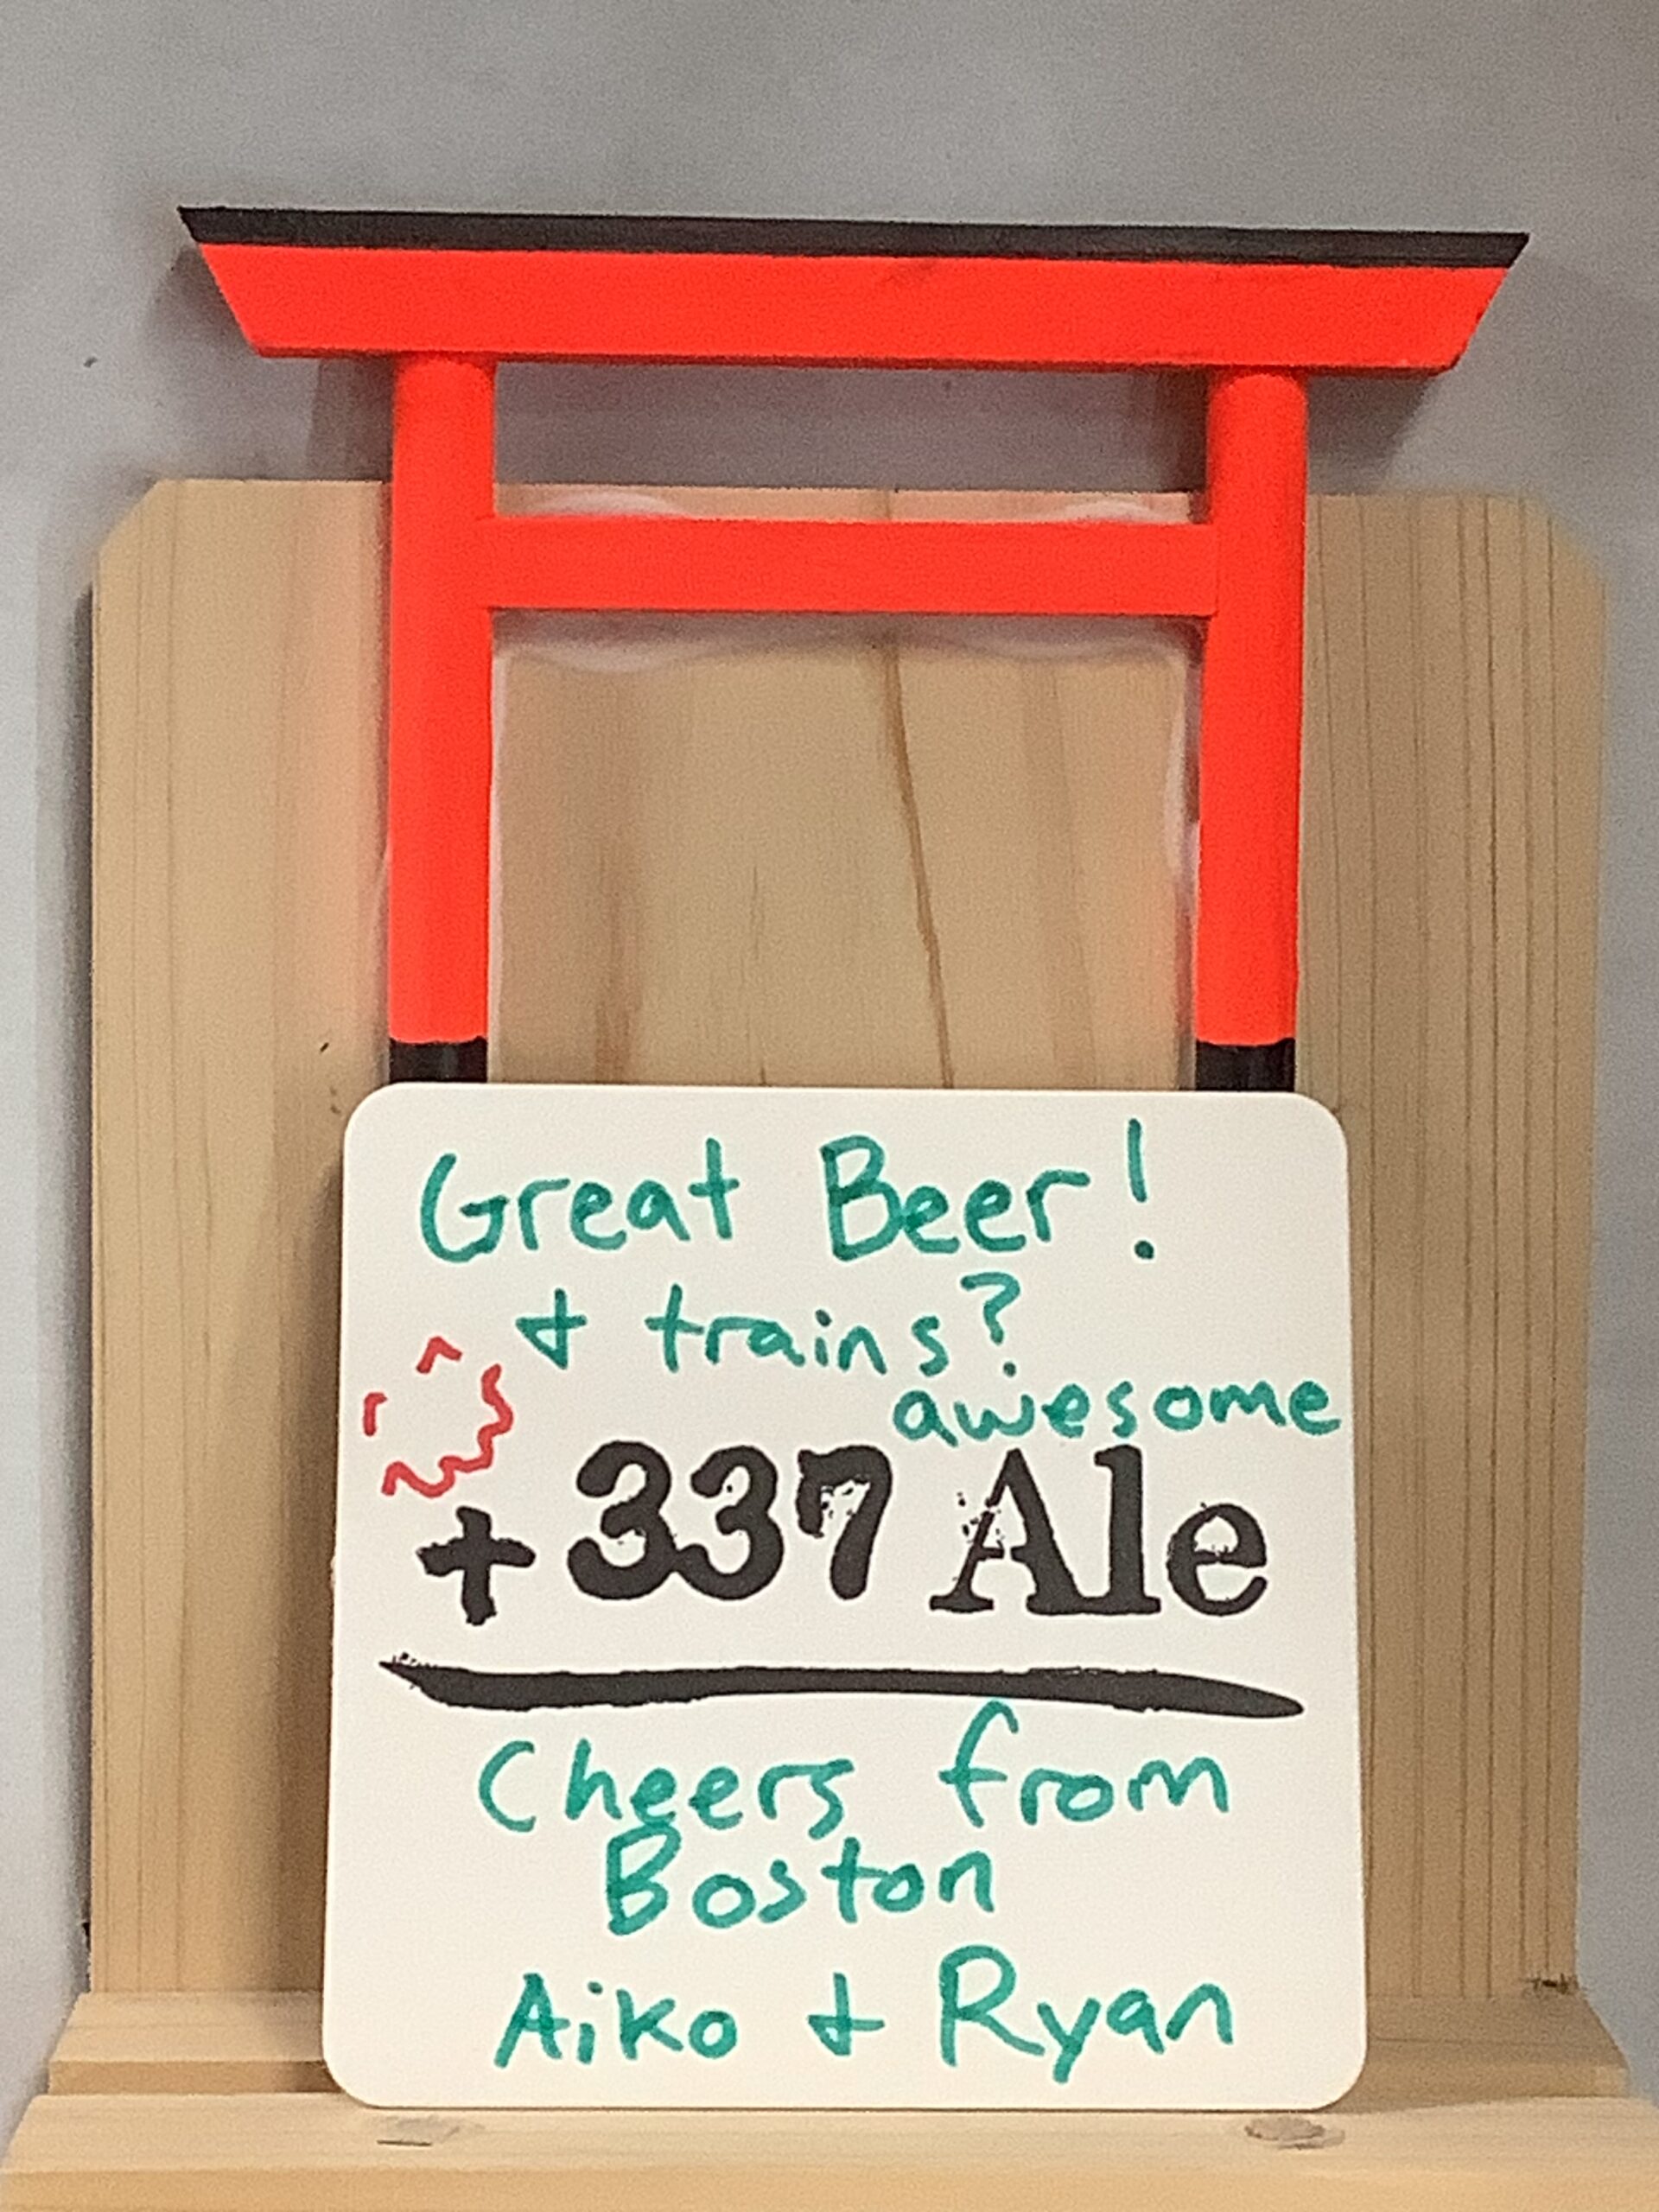 Great Beer!
+ trains?
awesome
+337 Ale
Cheers from
Boston
Aiko + Ryan